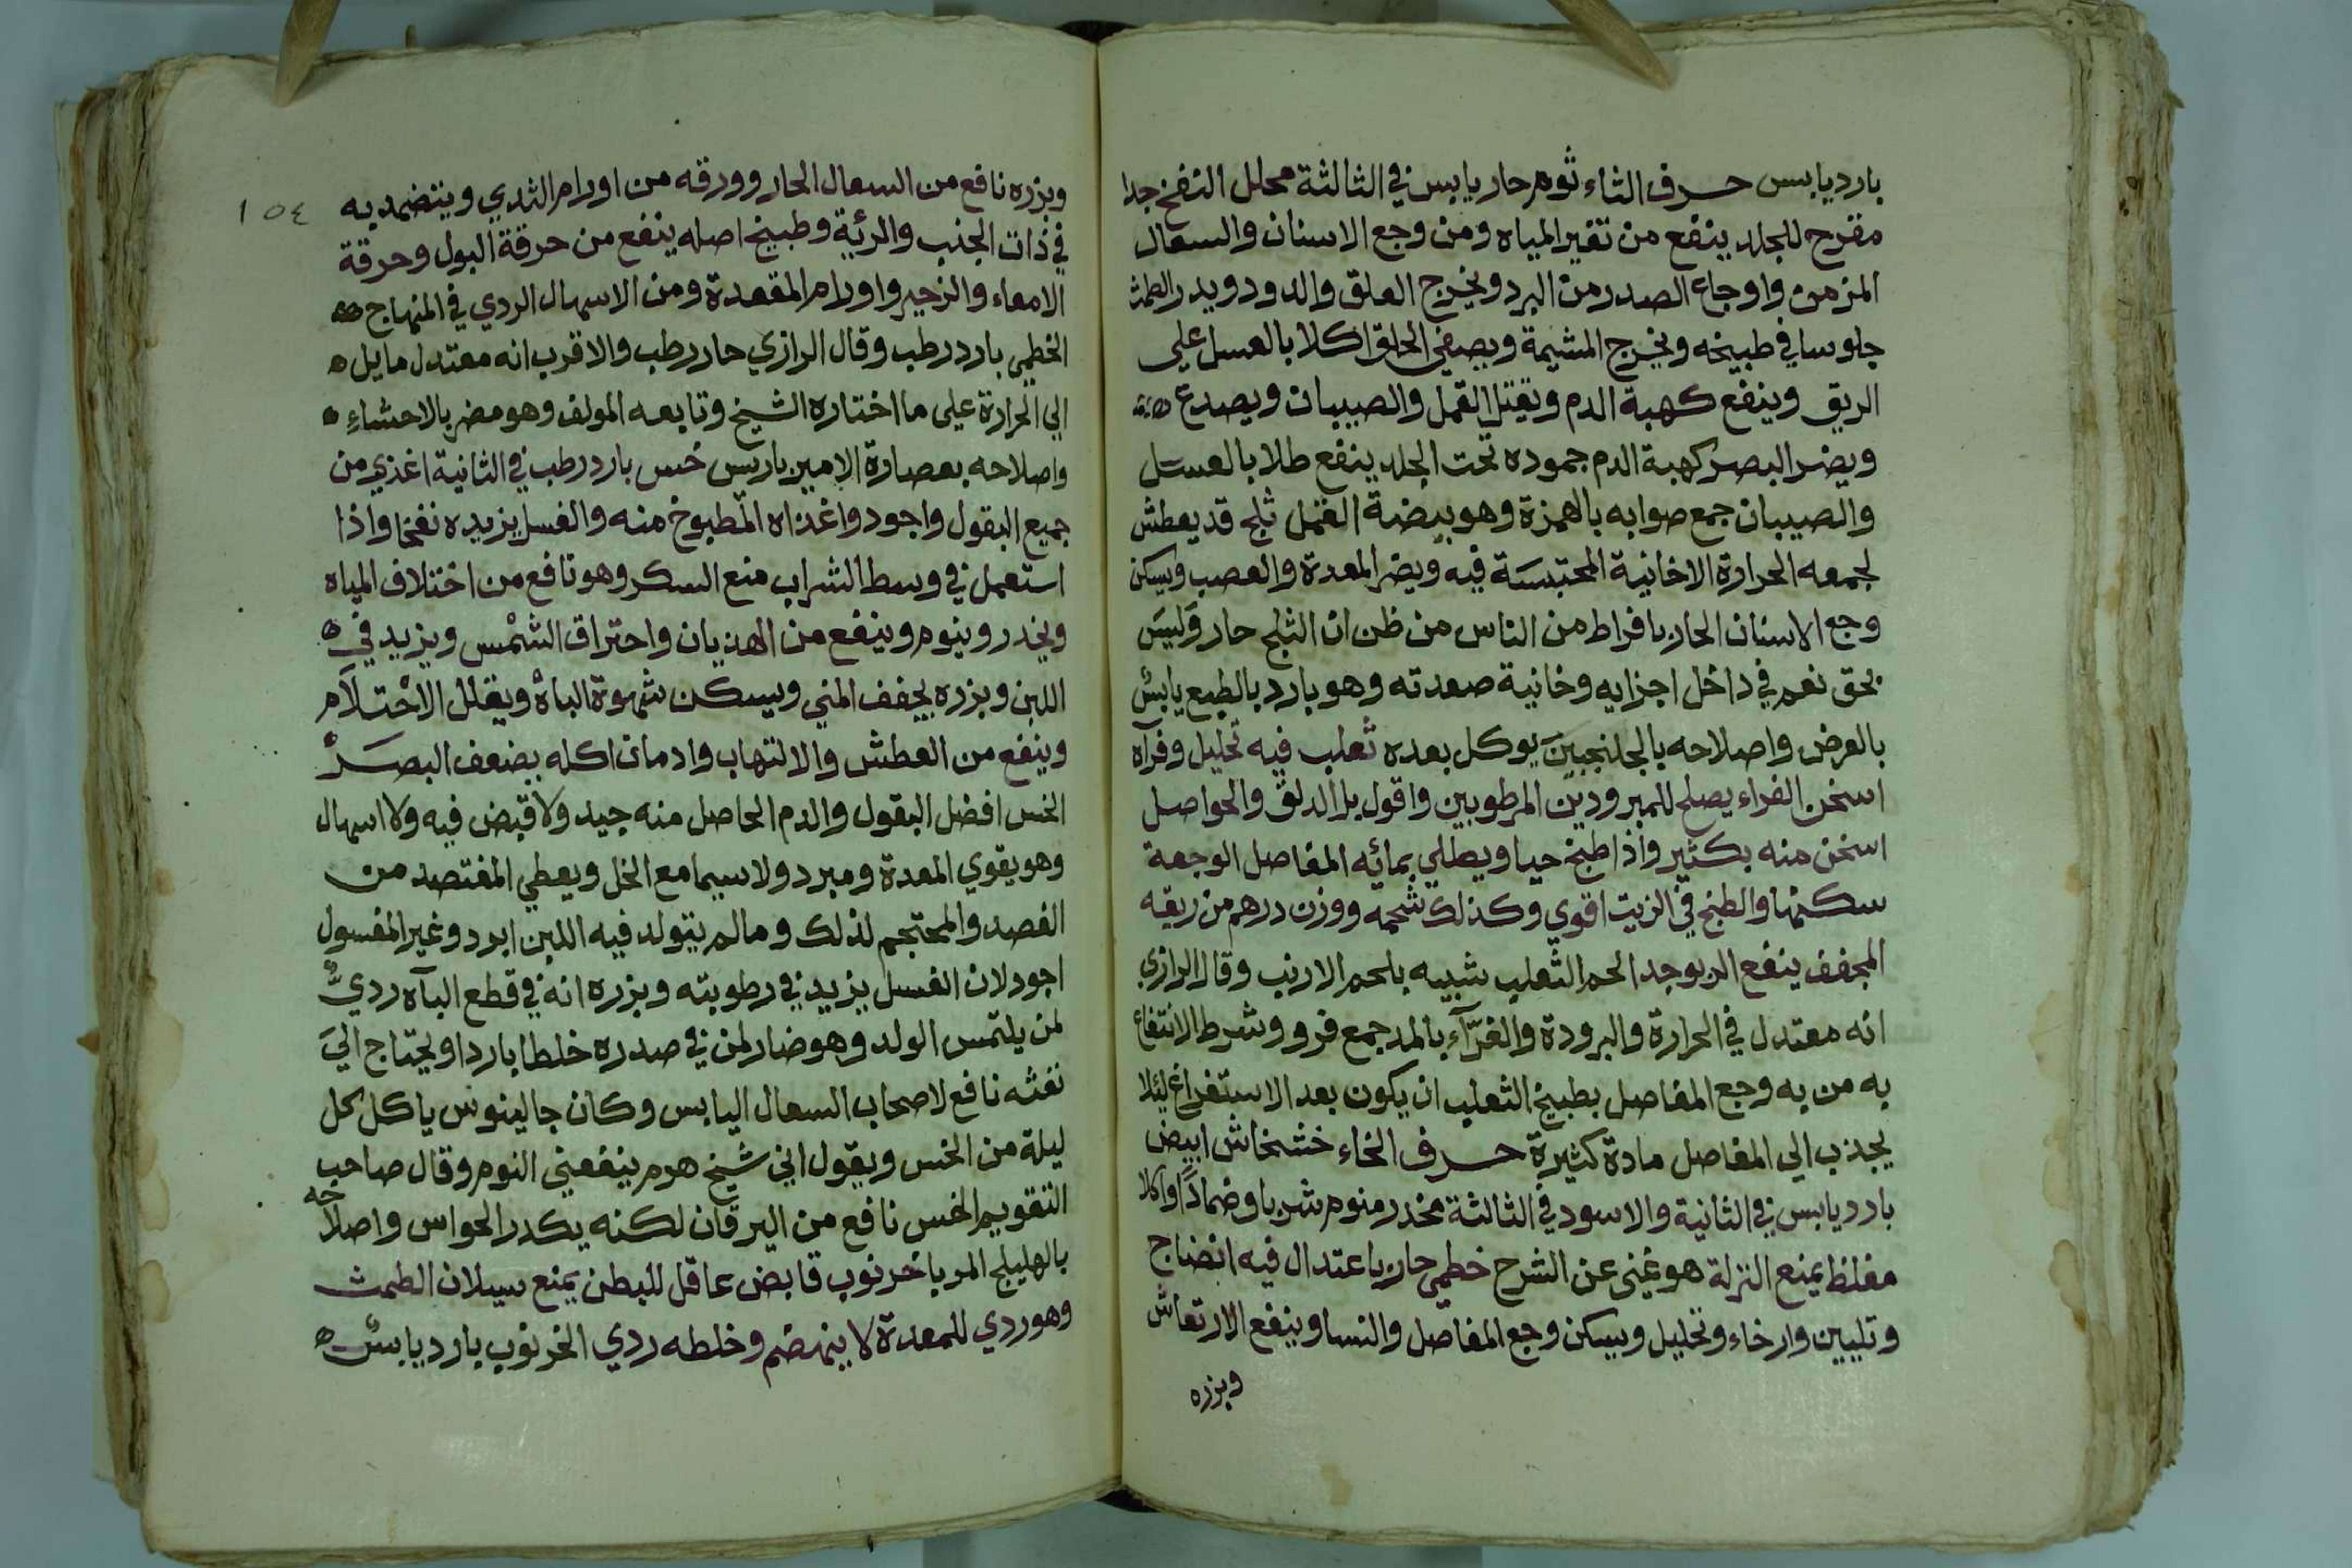 بارد يابس حرف الثاء ثوم حار يابس في الثالثة محلل النفخ جدا
مقرح للجلد ينفع من تغير المياه ومن وجع الاسنان والسعال
المزمن واوجاع الصدر من البرد ويخرج العلق والدود ويدر الطمث
جلوسا في طبيخه ويخرج المشيمة ويصفي الحلق اكلا بالعسل على
الريق وينفع كهبة الدم ويقتل القمل والصيبان ويصدع
ويضر البصر كهبة الدم جموده تحت الجلد ينفع طلا بالعسل
والصيبان جمع صوابه بالهمزة وهو بيضة القمل ثلج قد يعطش
لجمعه الحرارة الاخانية المحتبسة فيه ويضر المعدة والعصب ويسكن
وجع الاسنان الحار بافراط من الناس من ظن ان الثلج حار وليس
بحق نعم في داخل اجزايه وخانية صعدته وهو بارد بالطبع يابس
بالعرض واصلاحه بالجلنجبين يوكل بعده ثعلب فيه تحليل وفرآه
اسخن الفراء يصلح للمبرودين المرطوبين واقول بل الدلق والحواصل
اسخن منه بكثير واذا طبخ حيا ويطلي بمائه المفاصل الوجعة
سكنها والطبخ في الزيت اقوي وكذلك شحمه ووزن درهم من ريته
المجفف ينفع الربو جدا لحم الثعلب شبيه بلحم الارنب وقال الرازي
انه معتدل في الحرارة والبرودة والفرآء بالمد جمع فرو وشرط الانتفاع
به من به وجع المفاصل بطبيخ الثعلب ان يكون بعد الاستفراغ ليلا
يجذب الى المفاصل مادة كثيرة حرف الخاء خشخاش ابيض
بارد يابس في الثانية والاسود في الثالثة مخدر منوم شربا وضمادا واكلا
مغلظ يمنع النزلة هو غني عن الشرح خطمي حار باعتدال فيه انضاج
وتليين وارخاء وتحليل ويسكن وجع المفاصل والنسا وينفع الارتعاش
وبزره
١٥٤
وبزره نافع من السعال الحار وورقه من اورام الثدي ويتضمد به
في ذات الجنب والرئة وطبيخ اصله ينفع من حرقة البول وحرقة
الامعاء والزحير واورام المقعدة ومن الاسهال الردي في المنهاج
الخطمي بارد رطب وقال الرازي حار رطب والاقرب انه معتدل مايل
الي الحرارة على ما اختاره الشيخ وتابعه المولف وهو مضر بالاحشاء
واصلاحه بعصارة الامبرباريس خس بارد رطب في الثانية اغذي من
جميع البقول واجود واغذاه المطبوخ منه والغسل يزيده نفخا واذا
استعمل في وسط الشراب منع السكر وهو نافع من اختلاف المياه
ويخدر وينوم وينفع من الهذيان واحتراق الشمس ويزيد في
اللبن وبزره يجفف المني ويسكن شهوة الباه ويقلل الاحتلام
وينفع من العطش والالتهاب وادمان اكله يضعف البصر
الخس افضل البقول والدم الحاصل منه جيد ولا قبض فيه ولا اسهال
وهو يقوي المعدة ومبرد ولا سيما مع الخل ويعطي المفتصد من
الفصد والمحتجم لذلك ومالم يتولد فيه اللبن ابرد وغير المغسول
اجود لان الغسل يزيد في رطوبته وبزره انه في قطع البآه ردي
لمن يلتمس الولد وهو ضار لمن في صدره خلطا باردا ويحتاج الي
نفثه نافع لاصحاب السعال اليابس وكان جالينوس ياكل كل
ليلة من الخس ويقول اني شيخ هرم ينفعني النوم وقال صاحب
التقويم الخس نافع من اليرقان لكنه يكدر الحواس واصلاحه
بالهليلج المربا خرنوب قابض عاقل للبطن يمنع سيلان الطمث
وهو ردي للمعدة لا ينهضم وخلطه ردي الخرنوب بارد يابس